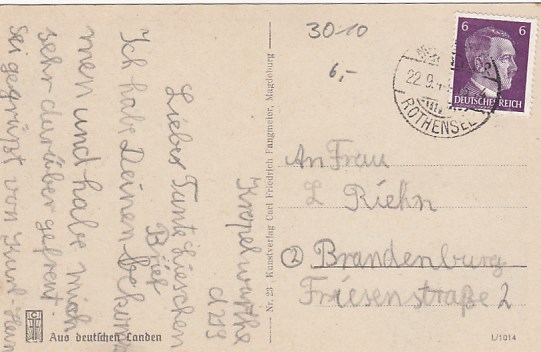 30-10
6,-
6 6
DEUTSCHES REICH
22.9.
ROTHENSEE
An Frau
L Riehn
② Brandenburg
Friesenstraße 2
d 29
Lieber Tante Lieschen
Ich habe Deinen Brief bekom
men und habe mich
sehr darüber gefreut
sei gegrüßt von Kurt-Hein
Nr. 23 Kunstverlag Carl Friedrich Fangmeier, Magdeburg
Aus deutschen Landen
L/1014